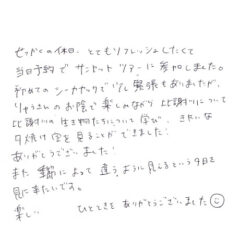 せっかくの休日、とてもリフレッシュしたくて
当日予約でサンセットツアーに参加しました。
初めてのシーカヤックで少し緊張もありましたが、
りゅうさんのお陰で楽しみながら比謝川について
比謝川の生き物たちについて学び、きれいな
夕焼け空を見ることができました!
ありがとうございました!
また季節によって違うように見えるという夕日を
見に来たいです。
楽しいひとときをありがとうございました